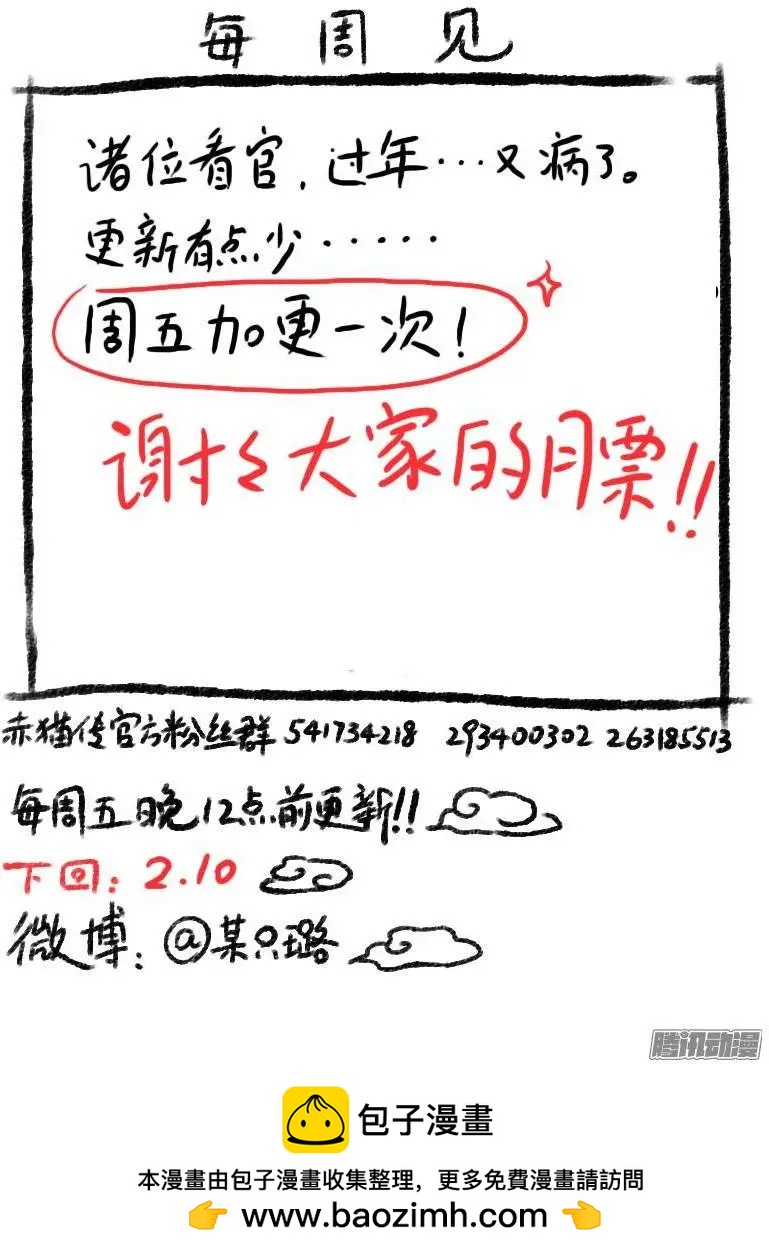 每周见
诸位看官，过年···又病了。
更新有点少·····
周五加更一次！
谢谢大家的月票!!
赤猫传官方粉丝群 541734218 293400302 263185513
每周五晚12点前更新!!
下回：2.10
微博：@某只璐
腾讯动漫
包子漫畫
本漫畫由包子漫畫收集整理，更多免費漫畫請訪問
👉 www.baozimh.com 👈